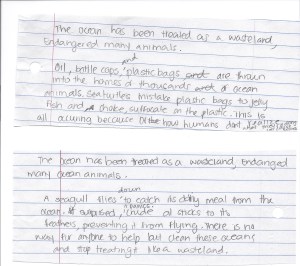 The ocean has been treated as a wasteland,
Endangered many animals.
and
Oil, bottle caps, plastic bags are thrown
into the homes of thousands of ocean
animals. Sea turtles mistake plastic bags to jelly
fish and choke, suffocate on the plastic. This is
all occuring because of the how humans don't
The ocean has been treated as a wasteland, Endanged
many ocean animals.
down
A seagull flies to catch its daily meal from the
ocean. surprised, crude oil sticks to its
feathers, preventing it from flying. There is no
way for anyone to help but clean these oceans
and stop treating it like a wasteland.